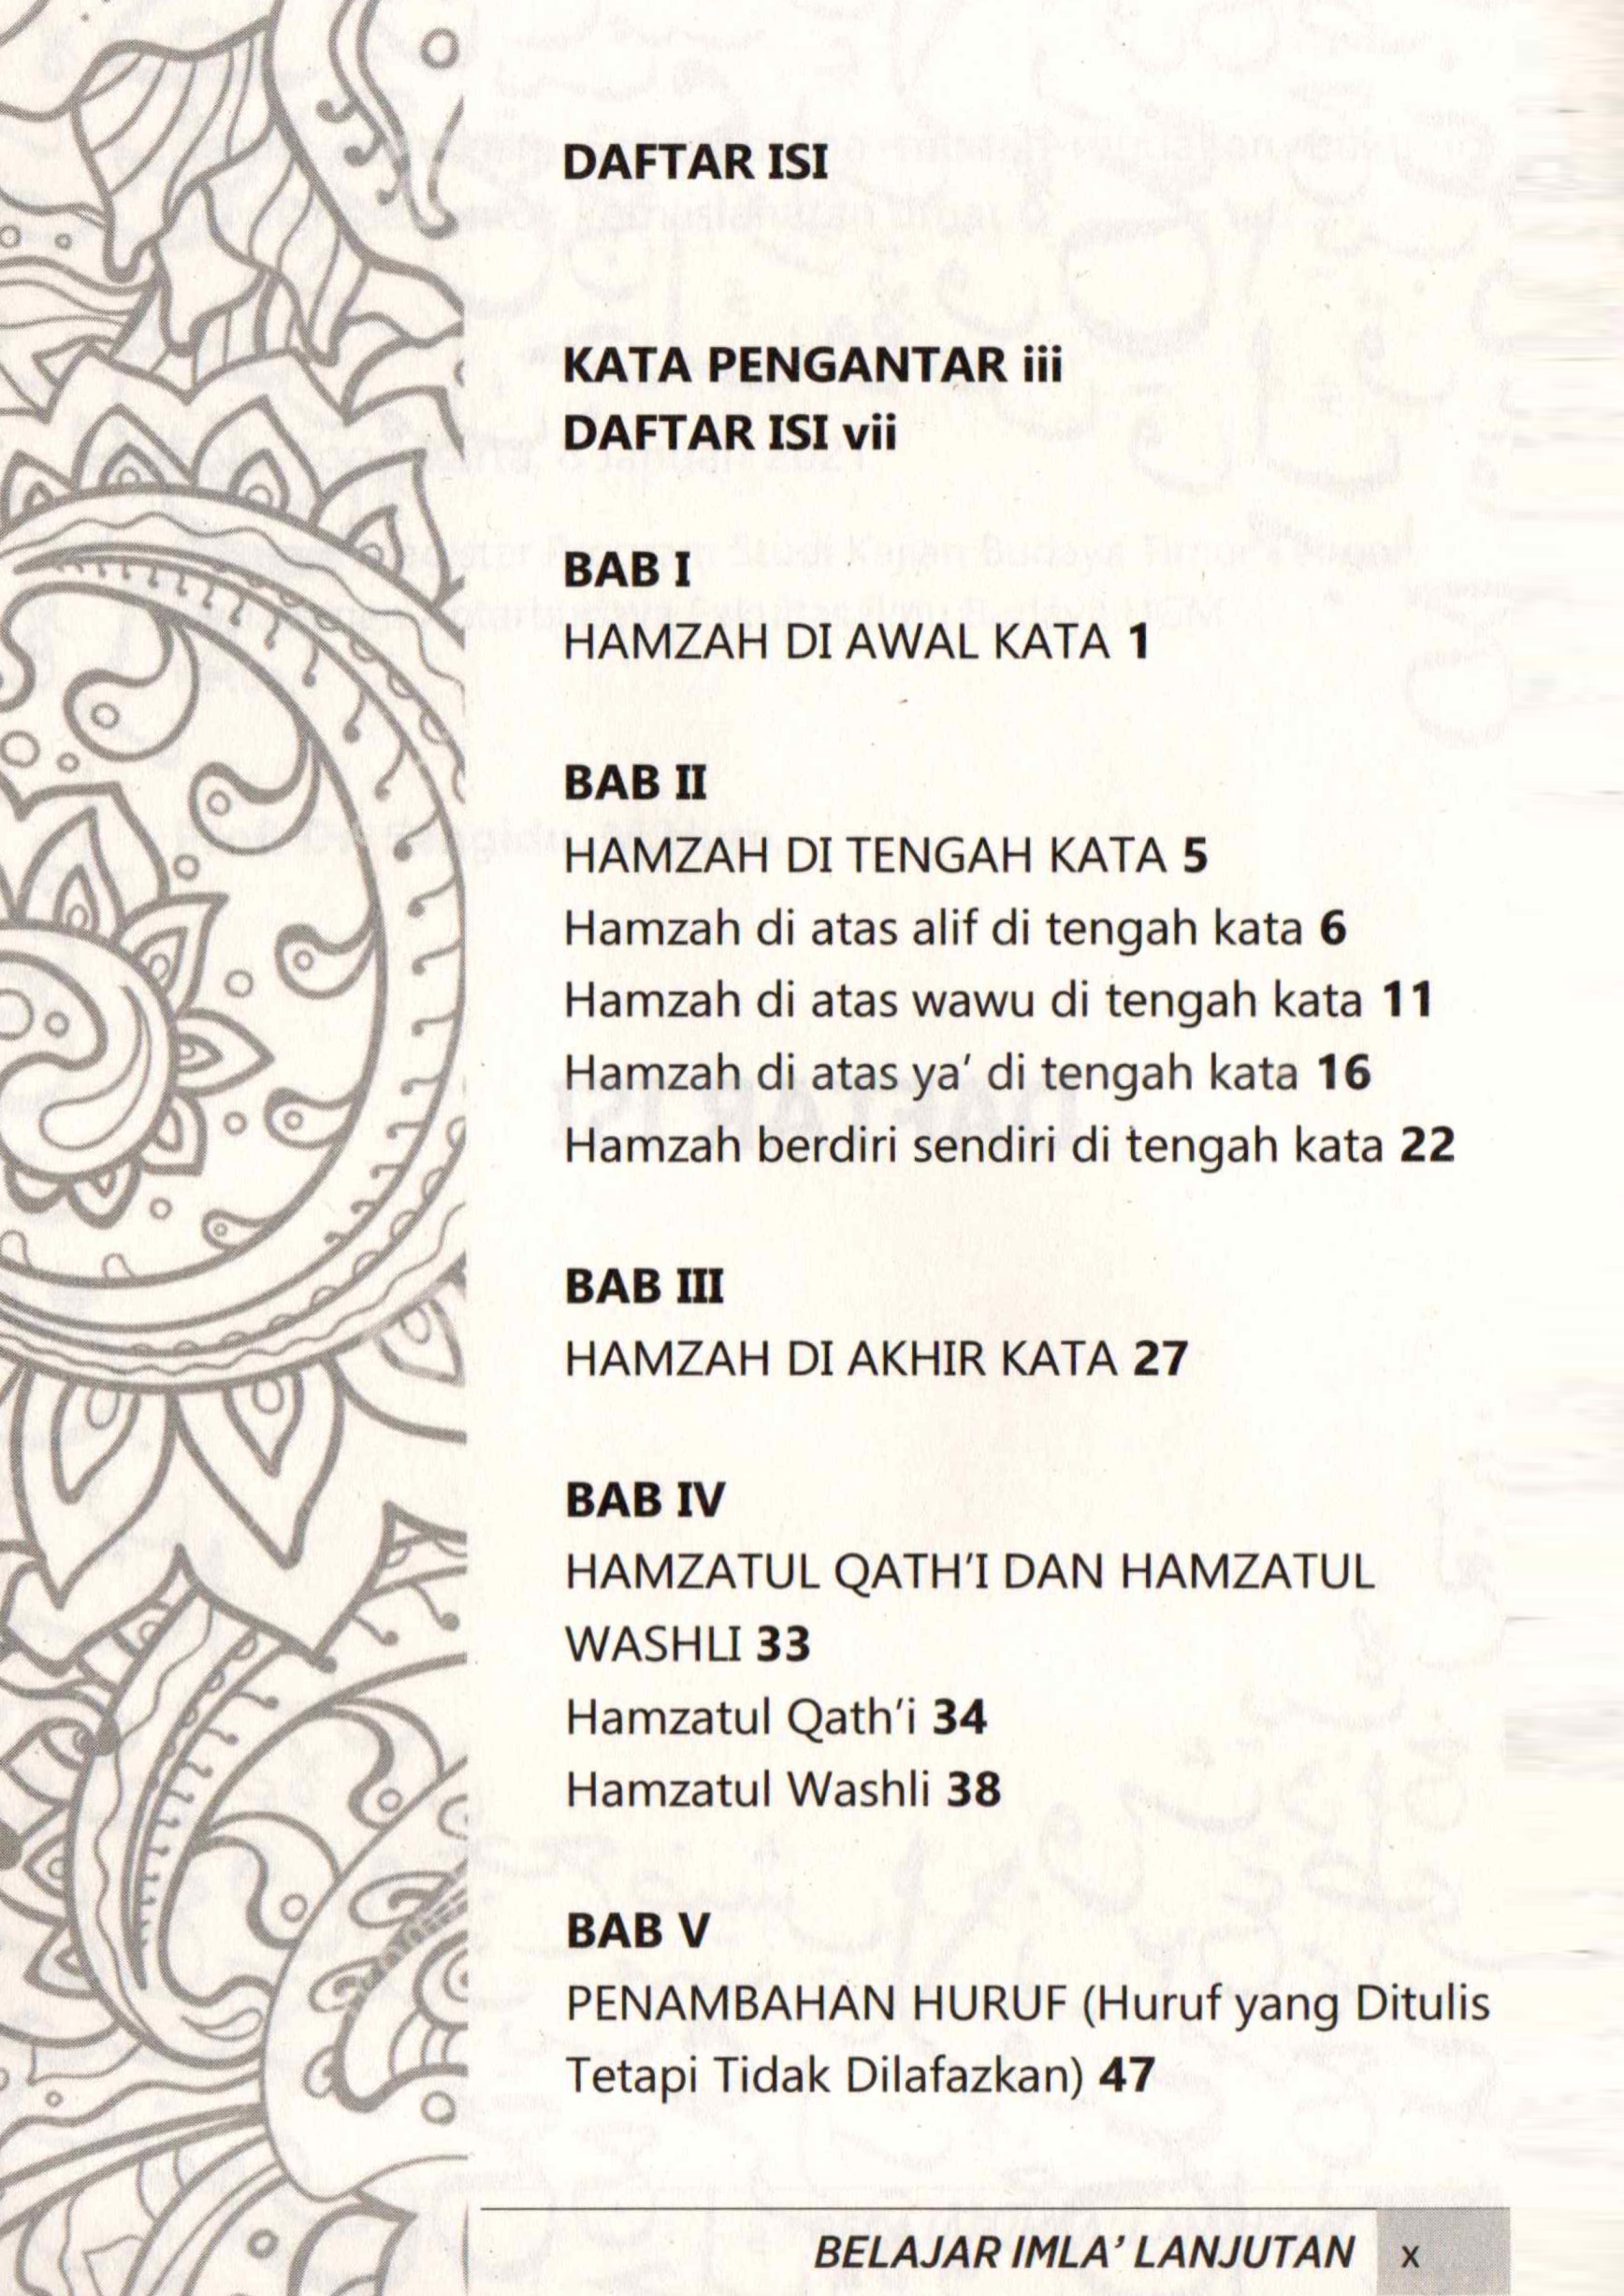 DAFTAR ISI
KATA PENGANTAR iii
DAFTAR ISI vii
BAB I
HAMZAH DI AWAL KATA 1
BAB II
HAMZAH DI TENGAH KATA 5
Hamzah di atas alif di tengah kata 6
Hamzah di atas wawu di tengah kata 11
Hamzah di atas ya’ di tengah kata 16
Hamzah berdiri sendiri di tengah kata 22
BAB III
HAMZAH DI AKHIR KATA 27
BAB IV
HAMZATUL QATH’I DAN HAMZATUL
WASHLI 33
Hamzatul Qath’i 34
Hamzatul Washli 38
BAB V
PENAMBAHAN HURUF (Huruf yang Ditulis
Tetapi Tidak Dilafazkan) 47
BELAJAR IMLA’ LANJUTAN x